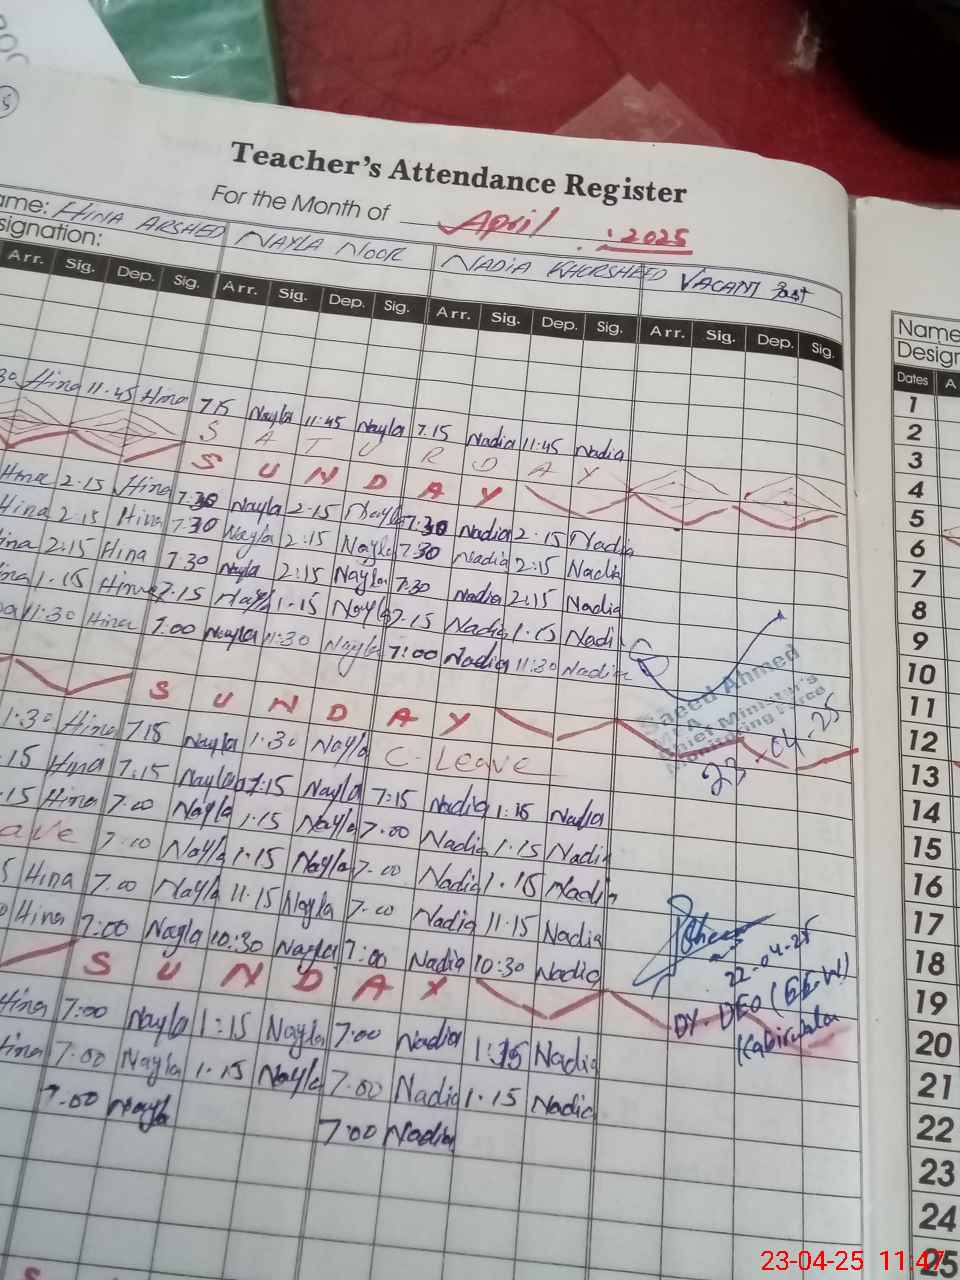 Teacher's Attendance Register
For the Month of April 2025
ame: HINA ARSHED NAYLA NOOR NADIA KHURSHEED VACANT Post
signation:
Arr. Sig. Dep. Sig. Arr. Sig. Dep. Sig. Arr. Sig. Dep. Sig. Arr. Sig. Dep. Sig.
30 Hina 11.45 Hina 7.15 Nayla 11.45 Nayla 7.15 Nadia 11.45 Nadia
S A T U R D A Y
S U N D A Y
Hina 2.15 Hina 7.30 Nayla 2.15 Nayla 7.30 Nadia 2.15 Nadia
Hina 2:15 Hina 7.30 Nayla 2:15 Nayla 7.30 Nadia 2:15 Nadia
ina 2:15 Hina 7.30 Nayla 2:15 Nayla 7.30 Nadia 2:15 Nadia
ina 1.15 Hina 7.15 Nayla 1.15 Nayla 7.15 Nadia 1.15 Nadi
11:30 Hina 7.00 Nayla 11:30 Nayla 7:00 Nadia 11:30 Nadia
S U N D A Y
1:30 Hina 7.15 Nayla 1.30 Nayla C-Leave
.15 Hina 7.15 Nayla 1:15 Nayla 7:15 Nadia 1:15 Nadia
.15 Hina 7.00 Nayla 1.15 Nayla 7.00 Nadia 1.15 Nadia
ave 7.00 Nayla 1.15 Nayla 7.00 Nadia 1.15 Nadia
5 Hina 7.00 Nayla 11.15 Nayla 7.00 Nadia 11.15 Nadia
0 Hina 7:00 Nayla 10:30 Nayla 7:00 Nadia 10:30 Nadia
S U N D A Y
Hina 7:00 Nayla 1:15 Nayla 7:00 Nadia 1:15 Nadia
ina 7:00 Nayla 1.15 Nayla 7.00 Nadia 1.15 Nadia
7.00 Nayla 7:00 Nadia
Saeed Ahmed
MEA
Chief Minister's
Monitoring Force
23.04.25
22-04-25
DY. DEO (EE-W)
Kabirwala
Name
Design
Dates A
1
2
3
4
5
6
7
8
9
10
11
12
13
14
15
16
17
18
19
20
21
22
23
24
25
23-04-25 11:47